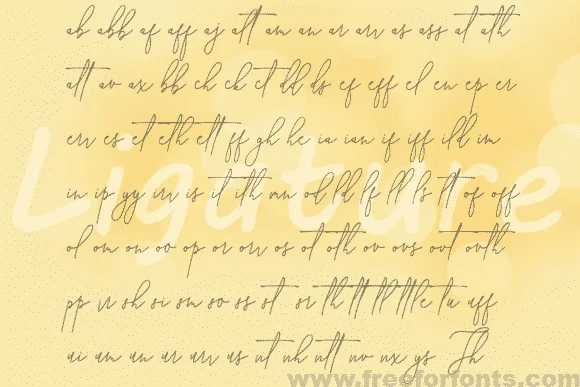 ab abb af aff aj alt am an ar arr as ass at ath
att av ax bb ch ck ct dd ds ef eff el en ep er
err es et eth ett ff gh he ia ian if iff ild im
Ligature
in ip irr is it ith ld lf ll ls lt of off
ol om on oo op or orr os ot oth ov ovs ovt ovth
pp rr sh si sm so ss st th tt uff
ui um un ur urr us ut utt uv ux ys Th
www.freeforfonts.com